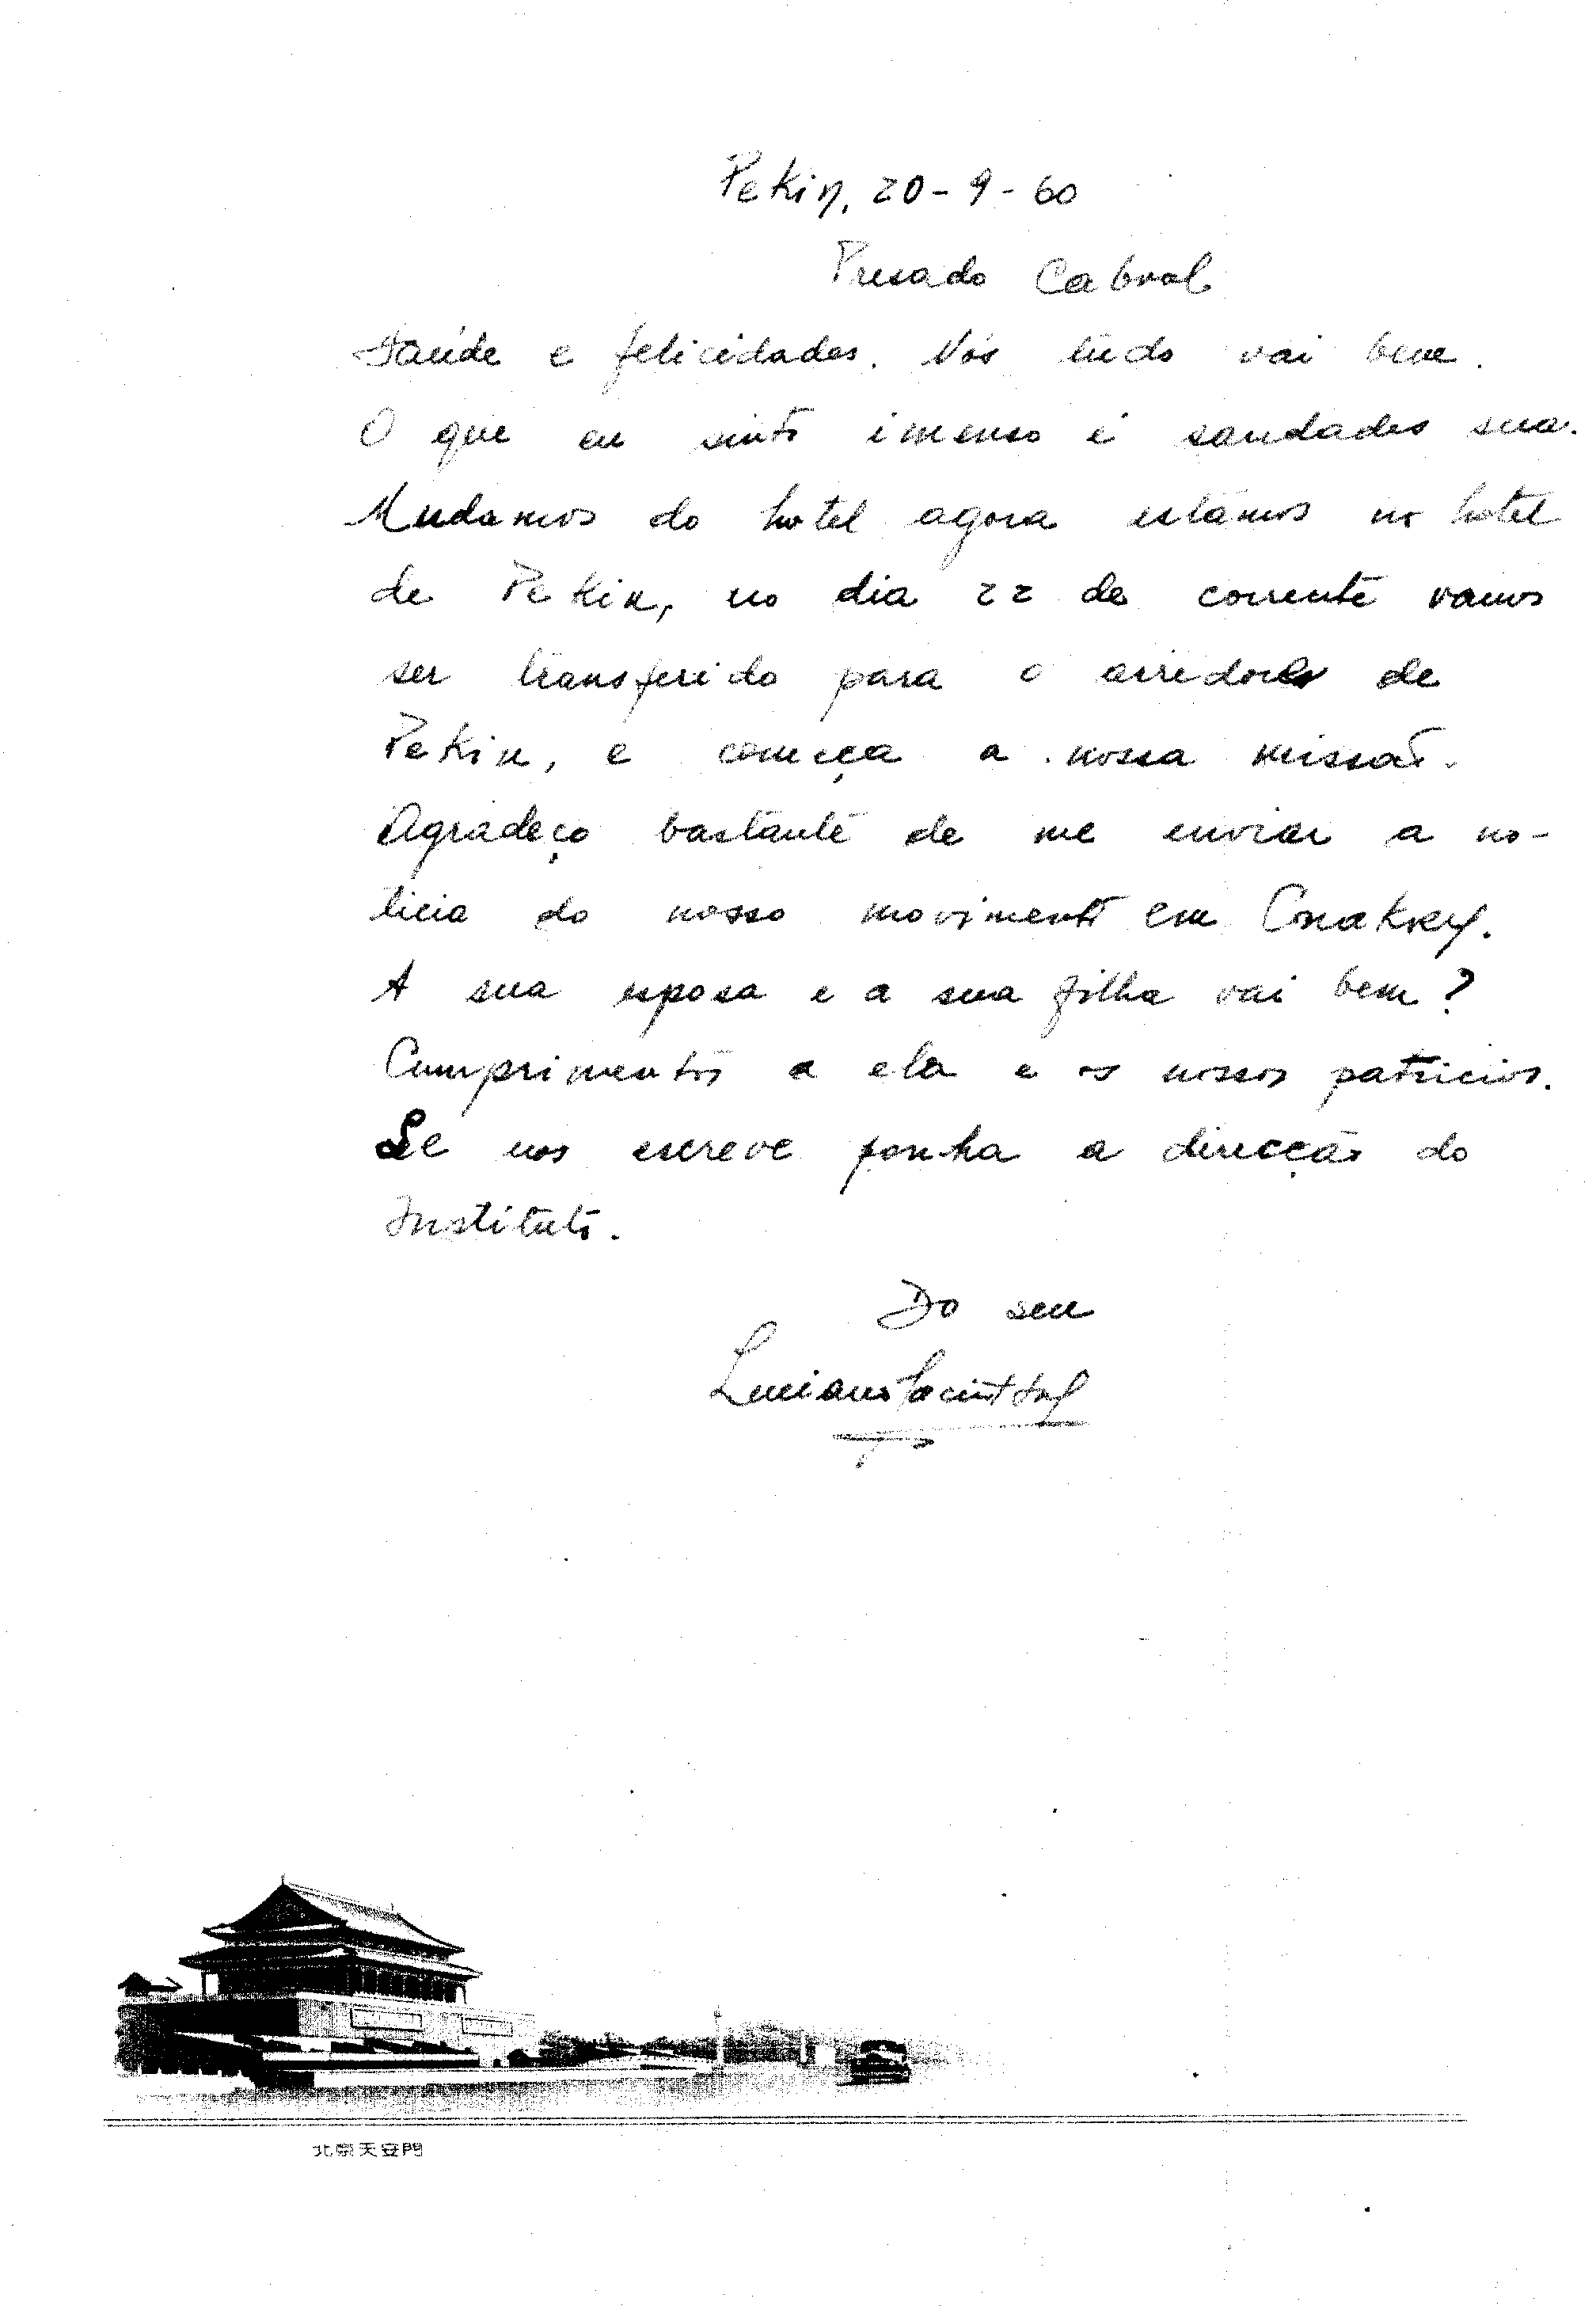 Pekin, 20-9-60
Presado Cabral
Saúde e felicidades. Nós tudo vai bem.
O que eu sinto imenso é saudades sua.
Mudamos do hotel agora estámos no hotel
de Pekin, no dia 22 de corrente vamos
ser transferido para o arredores de
Pekin, e começa a nossa missão.
Agradeço bastante de me enviar a no-
ticia do nosso movimento em Conakry.
A sua esposa e a sua filha vai bem?
Cumprimentos a ela e os nossos patricios.
Se nos escreve ponha a direcção do
Instituto.
Do seu
Luciano
北京天安門